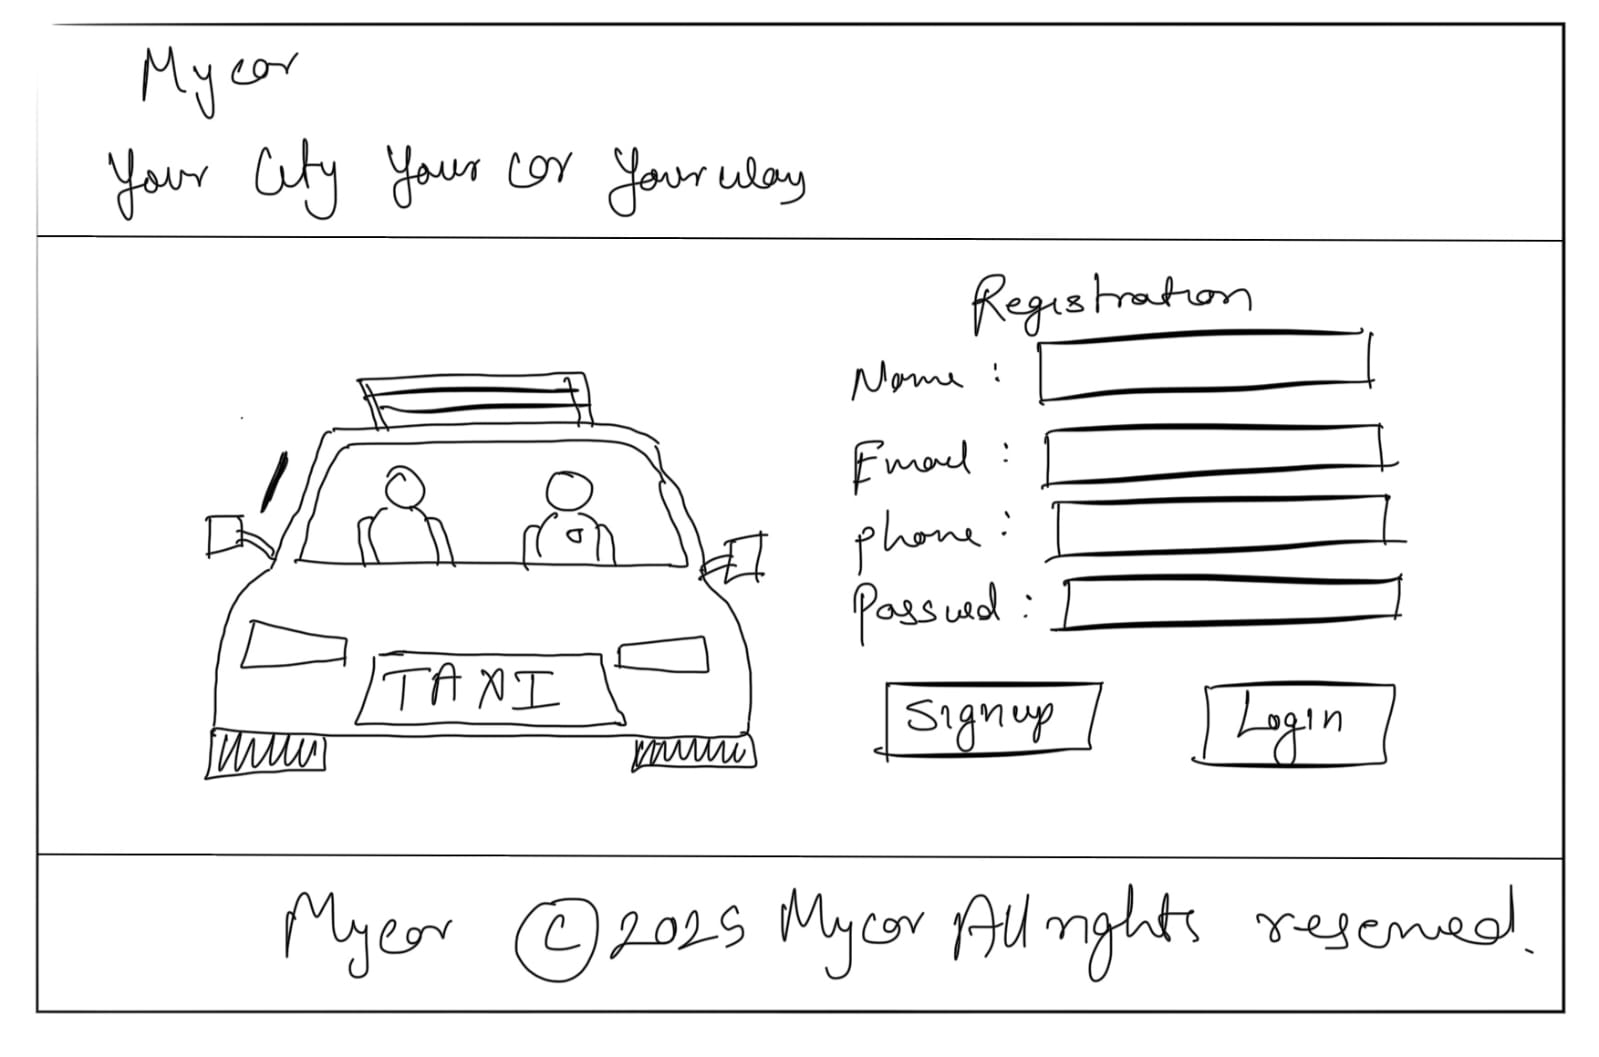 Mycar
Your City Your car Your way
Registration
Name :
Email :
phone :
Password :
TAXI
Signup
Login
Mycar © 2025 Mycar All rights reserved.